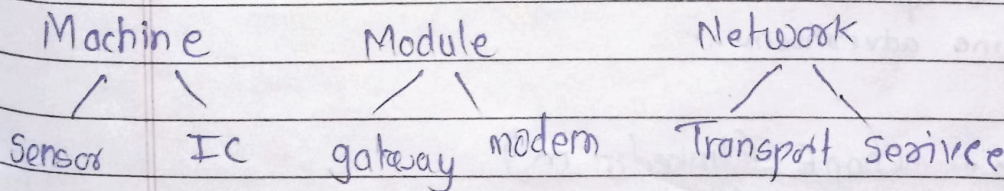 Machine Module Network
Sensor IC gateway modem Transport Serivce